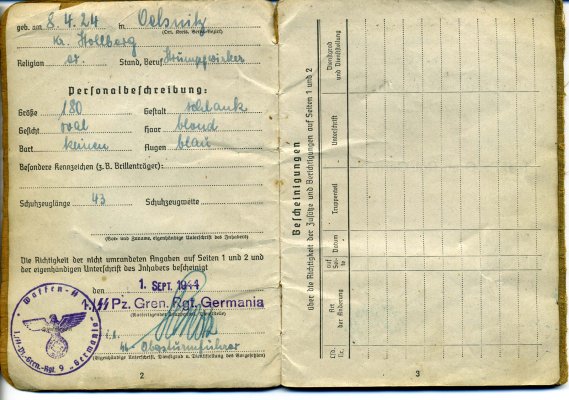 geb. am 8.4.24 in Oelsnitz
(Ort, Kreis, Verw.-Bezirk)
Kr. Stollberg
Religion ev. Stand, Beruf Strumpfwirker
Personalbeschreibung:
Größe 180 Gestalt schlank
Gesicht oval Haar blond
Bart keinen Augen blau
Besondere Kennzeichen (z.B. Brillenträger):
Schuhzeuglänge 43 Schuhzeugweite
(Vor- und Zuname, eigenhändige Unterschrift des Inhabers)
Die Richtigkeit der nicht umrandeten Angaben auf Seiten 1 und 2 und
der eigenhändigen Unterschrift des Inhabers bescheinigt
den 1. SEPT. 1944
Pz. Gren. Rgt. Germania
Waffen-
Gren.-Rgt. 9 „Germania"
Obersturmführer
(Eigenhändige Unterschrift, Dienstgrad u. Dienststellung des Vorgesetzten)
2
Bescheinigungen
über die Richtigkeit der Zusätze und Berichtigungen auf Seiten 1 und 2
Lfd. Nr.
Art der Änderung
auf Seite
Datum
Truppenteil
Unterschrift
Dienstgrad und Dienststellung
3